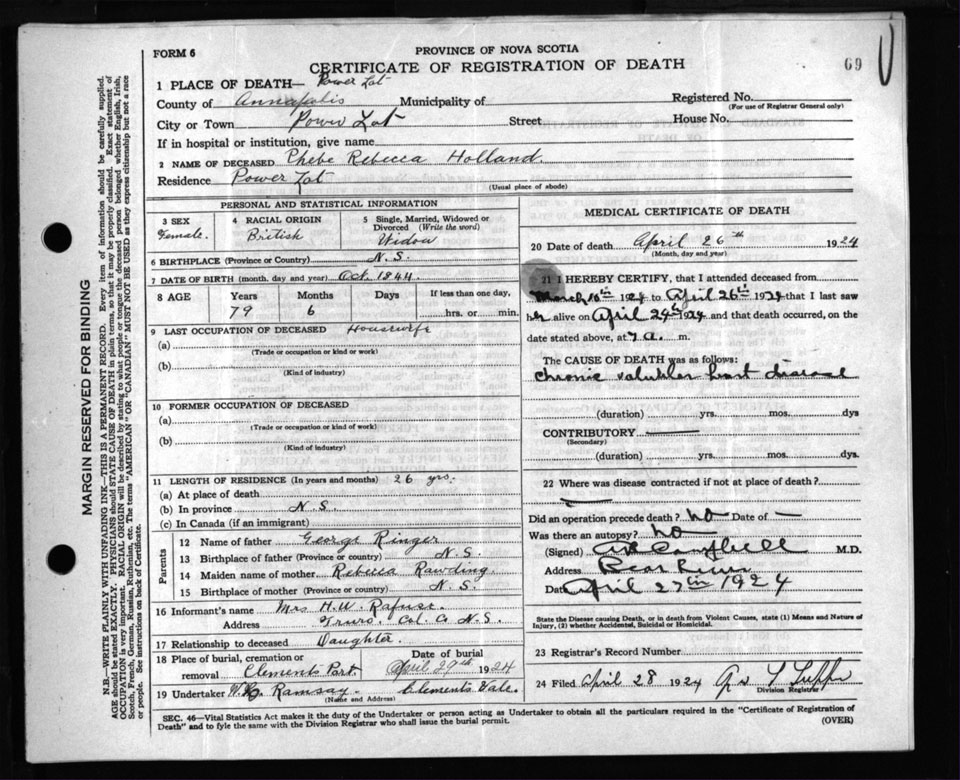 FORM 6
PROVINCE OF NOVA SCOTIA
CERTIFICATE OF REGISTRATION OF DEATH
69
1 PLACE OF DEATH— Power Lot
County of Annapolis Municipality of
Registered No.
(For use of Registrar General only)
City or Town Power Lot Street House No.
If in hospital or institution, give name
2 NAME OF DECEASED Phebe Rebecca Holland
Residence Power Lot
(Usual place of abode)
PERSONAL AND STATISTICAL INFORMATION
3 SEX
Female.
4 RACIAL ORIGIN
British
5 Single, Married, Widowed or
Divorced (Write the word)
Widow
6 BIRTHPLACE (Province or Country) N.S.
7 DATE OF BIRTH (month, day and year) Oct. 1844.
8 AGE Years Months Days If less than one day,
79 6 hrs. or min.
9 LAST OCCUPATION OF DECEASED Housewife
(a)
(Trade or occupation or kind of work)
(b)
(Kind of industry)
10 FORMER OCCUPATION OF DECEASED
(a)
(Trade or occupation or kind of work)
(b)
(Kind of industry)
11 LENGTH OF RESIDENCE (In years and months) 26 yrs.
(a) At place of death
(b) In province N.S.
(c) In Canada (if an immigrant)
Parents
12 Name of father George Ringer
13 Birthplace of father (Province or country) N.S.
14 Maiden name of mother Rebecca Rawding
15 Birthplace of mother (Province or country) N.S.
16 Informant's name Mrs H.W. Rafuse
Address Truro, Col. Co N.S.
17 Relationship to deceased Daughter.
18 Place of burial, cremation or
removal Clements Port
Date of burial
April 29th 1924
19 Undertaker Ramsay. Clements Vale.
(Name and Address)
MEDICAL CERTIFICATE OF DEATH
20 Date of death April 26th 1924
(Month, day and year)
21 I HEREBY CERTIFY, that I attended deceased from
March 10th 1924 to April 26th 1924 that I last saw
her alive on April 24th 1924 and that death occurred, on the
date stated above, at 7 a. m.
The CAUSE OF DEATH was as follows:
Chronic valvular heart disease
(duration) yrs. mos. dys
CONTRIBUTORY —
(Secondary)
(duration) yrs. mos. dys.
22 Where was disease contracted if not at place of death?
—
Did an operation precede death? No Date of —
Was there an autopsy? No
(Signed) Campbell M.D.
Address Bear River
Date April 27th 1924
State the Disease causing Death, or in death from Violent Causes, state (1) Means and Nature of
Injury, (2) whether Accidental, Suicidal or Homicidal.
23 Registrar's Record Number
24 Filed April 28 1924
Division Registrar
SEC. 46—Vital Statistics Act makes it the duty of the Undertaker or person acting as Undertaker to obtain all the particulars required in the "Certificate of Registration of
Death" and to fyle the same with the Division Registrar who shall issue the burial permit.
(OVER)
MARGIN RESERVED FOR BINDING
N.B.—WRITE PLAINLY WITH UNFADING INK—THIS IS A PERMANENT RECORD. Every item of information should be carefully supplied.
AGE should be stated EXACTLY. PHYSICIANS should STATE CAUSE OF DEATH in plain terms, so that it may be properly classified. Exact statement of
OCCUPATION is very important. RACIAL ORIGIN will be described by stating to what people or tongue the deceased person belonged whether English, Irish,
Scotch, French, German, Russian, Ruthenian, etc. The terms "AMERICAN" OR "CANADIAN" MUST NOT BE USED as they express citizenship but not a race
or people. See instructions on back of Certificate.